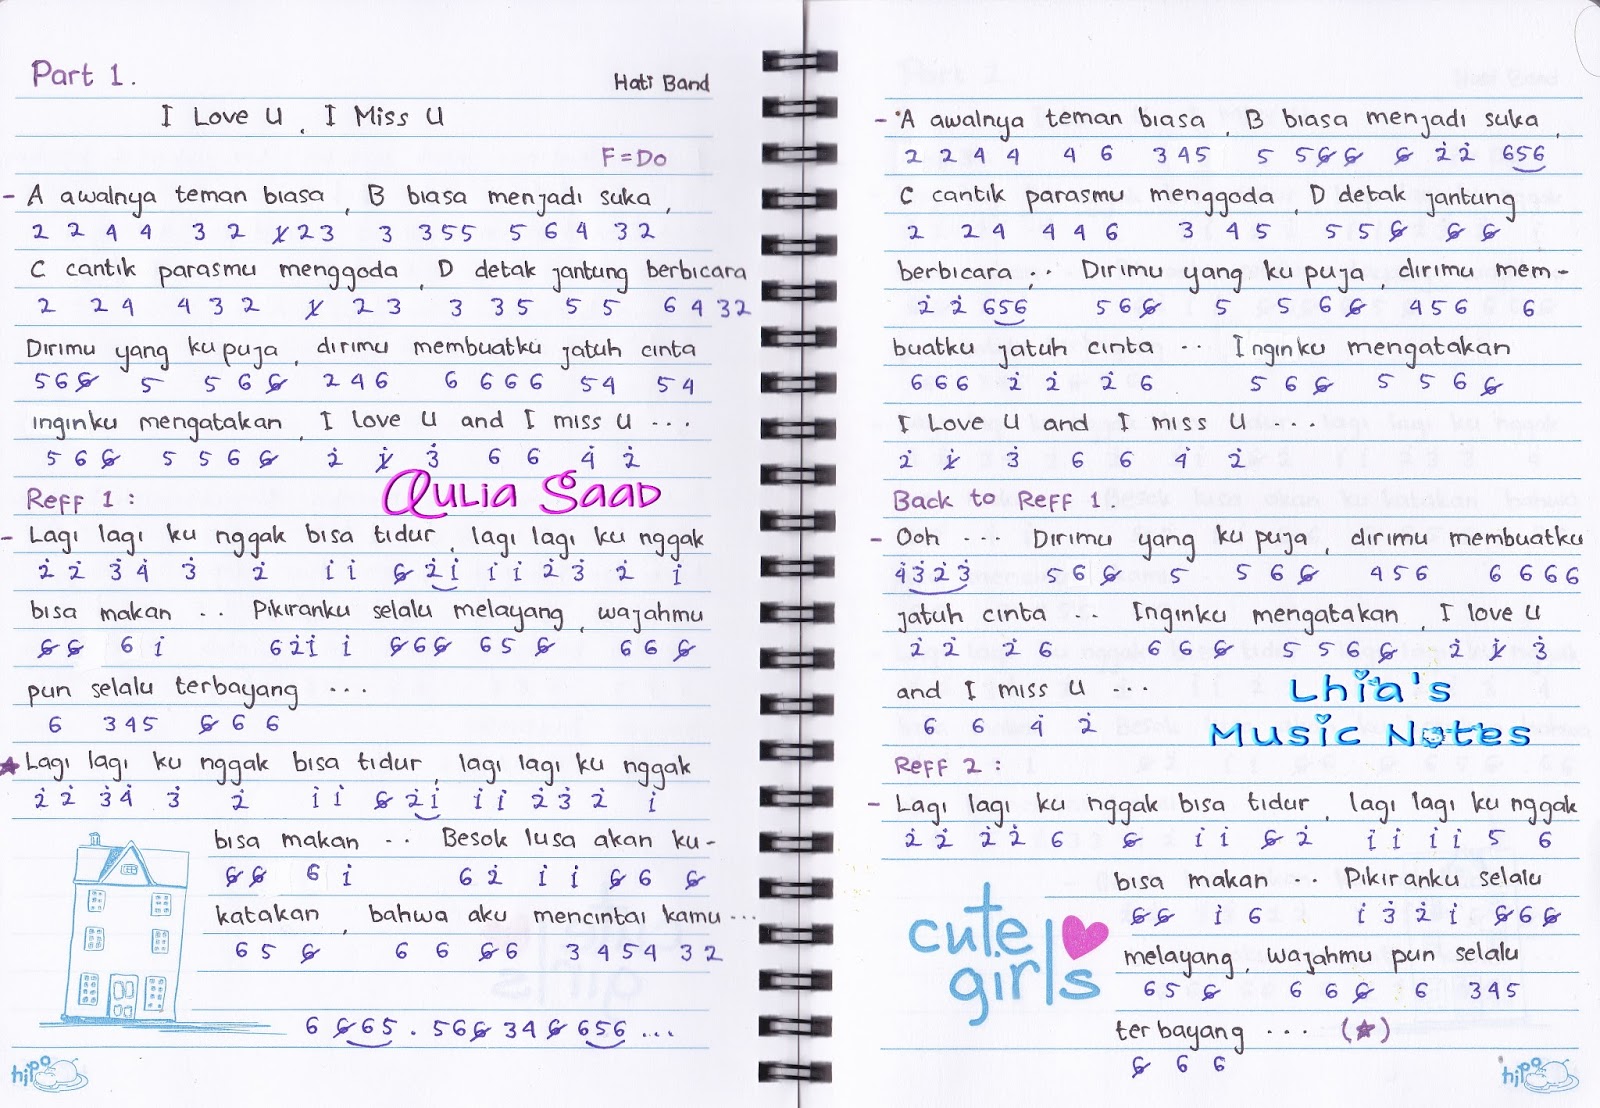 Part 1.
Hati Band
I Love U, I Miss U
F = Do
- A awalnya teman biasa, B biasa menjadi suka,
2 2 4 4 3 2 1̸ 2 3 3 3 5 5 5 6 4 3 2
C cantik parasmu menggoda, D detak jantung berbicara
2 2 4 4 3 2 1̸ 2 3 3 3 5 5 5 6 4 3 2
Dirimu yang ku puja, dirimu membuatku jatuh cinta
5 6 6̸ 5 5 6 6̸ 2 4 6 6 6 6 6 5 4 5 4
inginku mengatakan, I love U and I miss U ...
5 6 6̸ 5 5 6 6̸ 2̇ 1̸̇ 3̇ 6 6 4̇ 2̇
Qulia Saad
Reff 1 :
- Lagi lagi ku nggak bisa tidur, lagi lagi ku nggak
2̇ 2̇ 3̇ 4̇ 3̇ 2̇ 1̇ 1̇ 6̸ 2̇ 1̇ 1̇ 1̇ 2̇ 3̇ 2̇ 1̇
bisa makan .. Pikiranku selalu melayang, wajahmu
6̸ 6̸ 6 1̇ 6 2̇ 1̇ 1̇ 6̸ 6 6̸ 6 5 6̸ 6 6 6̸
pun selalu terbayang ...
6 3 4 5 6̸ 6 6
★ Lagi lagi ku nggak bisa tidur, lagi lagi ku nggak
2̇ 2̇ 3̇ 4̇ 3̇ 2̇ 1̇ 1̇ 6̸ 2̇ 1̇ 1̇ 1̇ 2̇ 3̇ 2̇ 1̇
bisa makan .. Besok lusa akan ku-
6̸ 6̸ 6 1̇ 6 2̇ 1̇ 1̇ 6̸ 6 6̸
katakan, bahwa aku mencintai kamu ...
6 5 6̸ 6 6 6̸ 6 3 4 5 4 3 2
6 6̸ 6 5 . 5 6 6̸ 3 4 6̸ 6 5 6 ...
hipo
- "A awalnya teman biasa, B biasa menjadi suka,
2 2 4 4 4 6 3 4 5 5 5 6̸ 6̸ 6̸ 2̇ 2̇ 6 5 6
C cantik parasmu menggoda, D detak jantung
2 2 4 4 4 6 3 4 5 5 5 6̸ 6̸ 6̸
berbicara .. Dirimu yang ku puja, dirimu mem-
2̇ 2̇ 6 5 6 5 6 6̸ 5 5 6 6̸ 4 5 6 6
buatku jatuh cinta .. Inginku mengatakan
6 6 6 2̇ 2̇ 2̇ 6 5 6 6̸ 5 5 6 6̸
I Love U and I miss U ...
2̇ 1̸̇ 3̇ 6 6 4̇ 2̇
Back to Reff 1.
- Ooh ... Dirimu yang ku puja, dirimu membuatku
4̇ 3̇ 2̇ 3̇ 5 6 6̸ 5 5 6 6̸ 4 5 6 6 6 6 6
jatuh cinta .. Inginku mengatakan, I love U
2̇ 2̇ 2̇ 6 6 6 6̸ 5 5 6 6̸ 2̇ 1̸̇ 3̇
and I miss U ...
6 6 4̇ 2̇
Lhia's
Music Notes
Reff 2 :
- Lagi lagi ku nggak bisa tidur, lagi lagi ku nggak
2̇ 2̇ 2̇ 2̇ 6 6̸ 1̇ 1̇ 6̸ 2̇ 1̇ 1̇ 1̇ 1̇ 5 6
bisa makan ... Pikiranku selalu
6̸ 6̸ 1̇ 6 1̇ 3̇ 2̇ 1̇ 6̸ 6 6̸
melayang, wajahmu pun selalu
6 5 6̸ 6 6 6̸ 6 3 4 5
terbayang ... (★)
6̸ 6 6
cute
girls
hipo